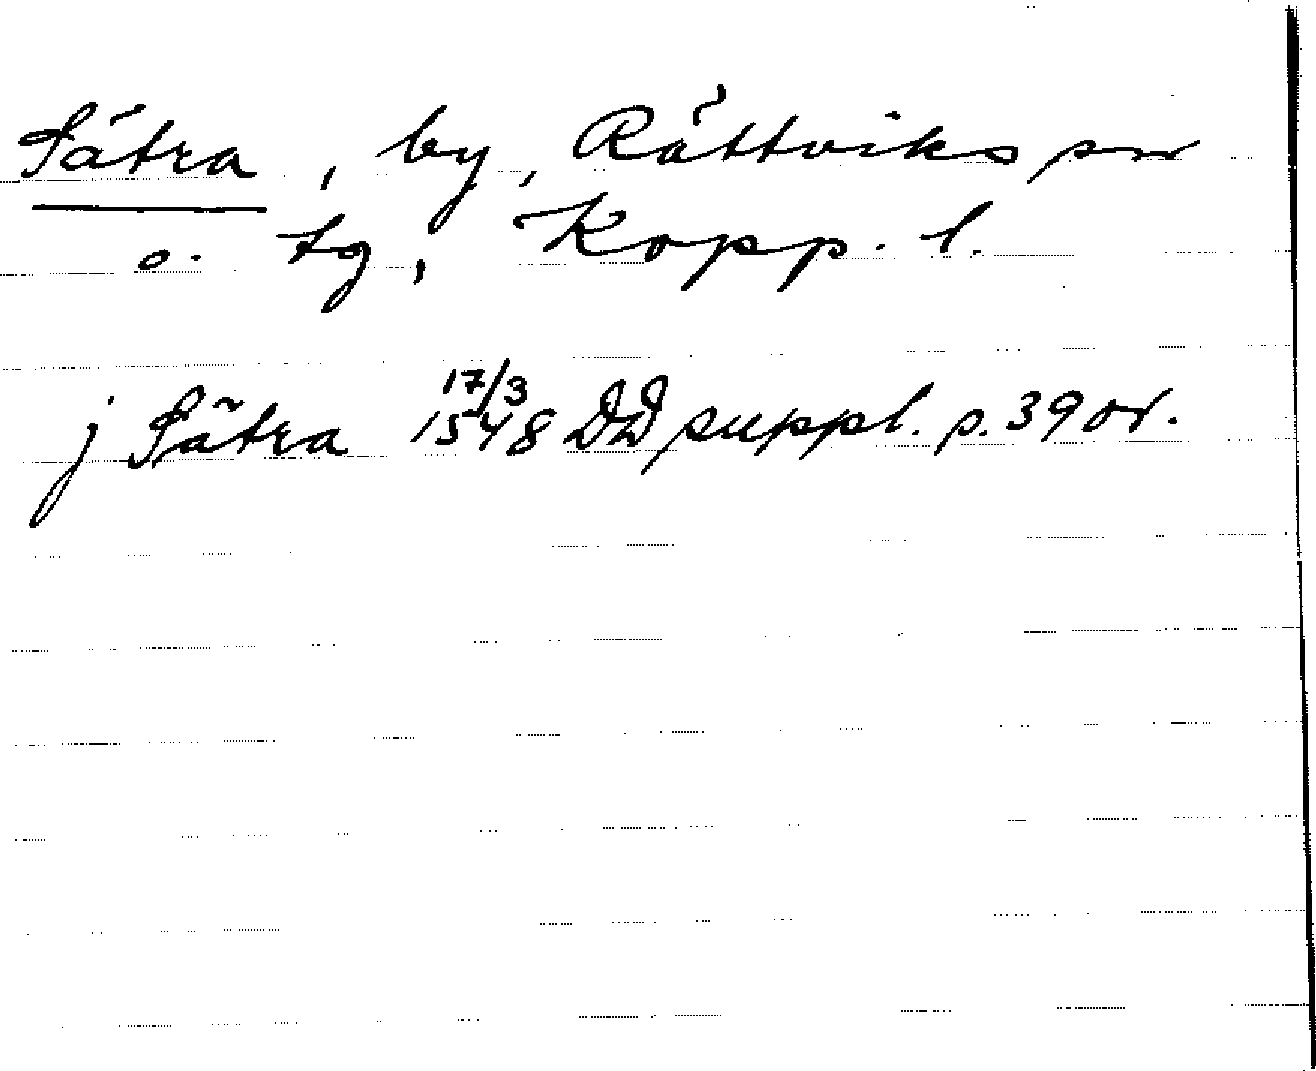 Sätra, by, Rättviks sn
o. tg, Kopp. l.
j Sätra 17/3 1548 DD suppl. s. 39 or.